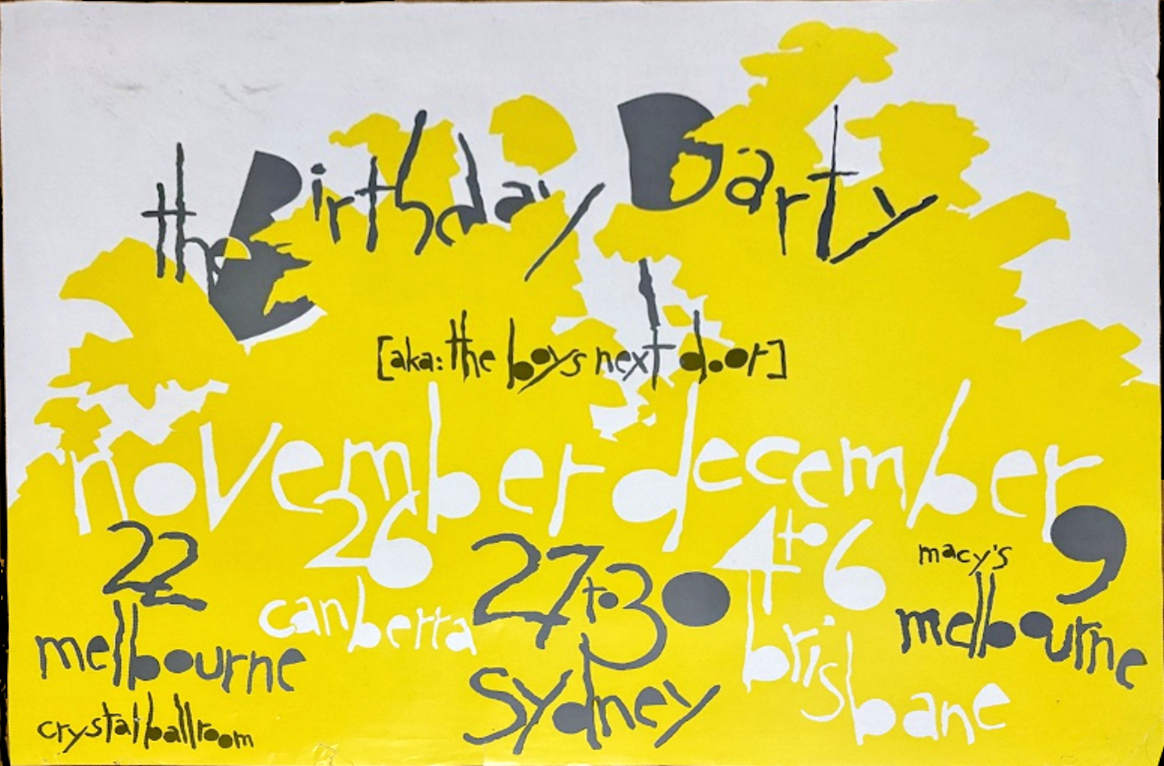 the Birthday Party
[aka: the boys next door]
november december
22
melbourne
crystal ballroom
26
canberra
27 to 30
Sydney
4 to 6
brisbane
macy's
9
melbourne